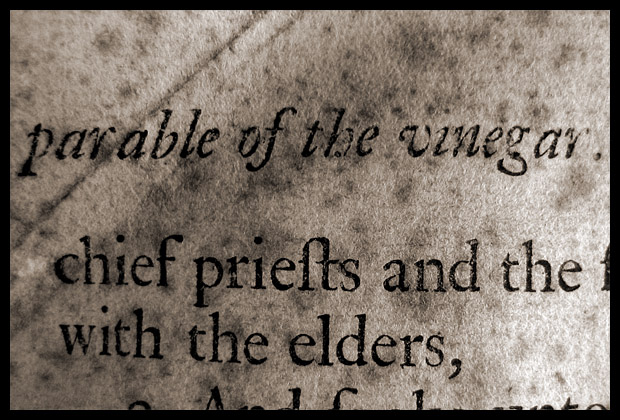 parable of the vinegar.
chief prieſts and the
with the elders,
And